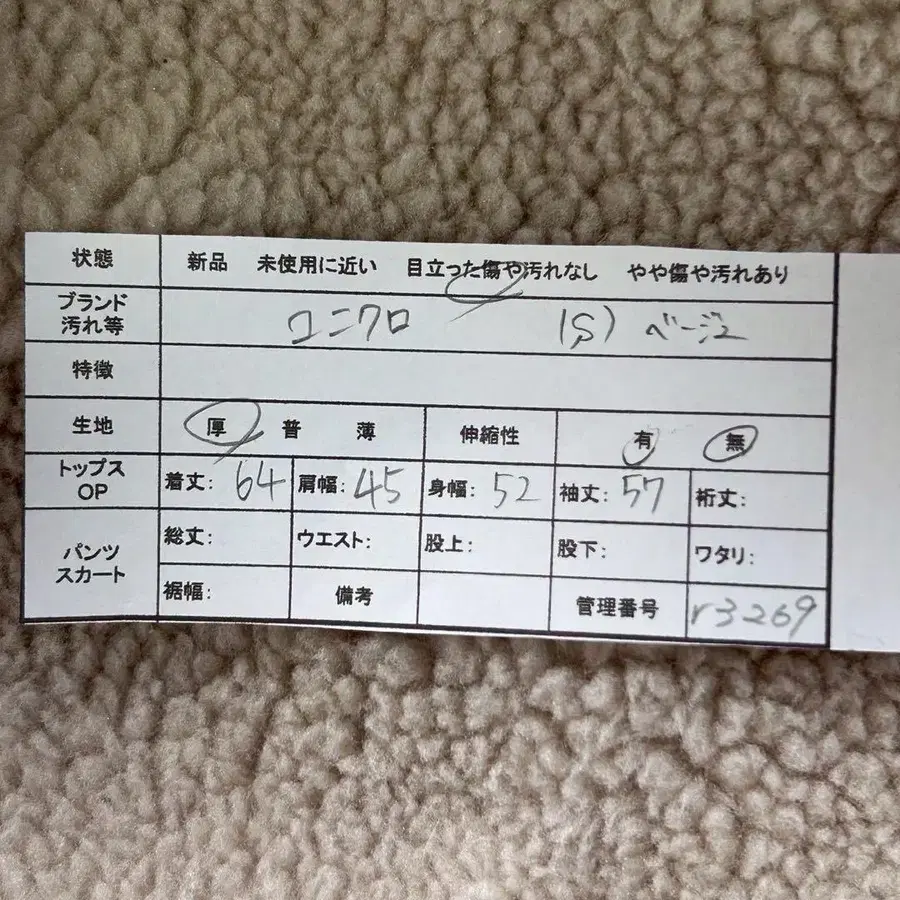 状態 新品 未使用に近い 目立った傷や汚れなし やや傷や汚れあり
ブランド汚れ等 ユニクロ (S) ベージュ
特徴
生地 厚 普 薄 伸縮性 有 無
トップスOP 着丈: 64 肩幅: 45 身幅: 52 袖丈: 57 裄丈:
パンツスカート 総丈: ウエスト: 股上: 股下: ワタリ:
裾幅: 備考 管理番号 r3269